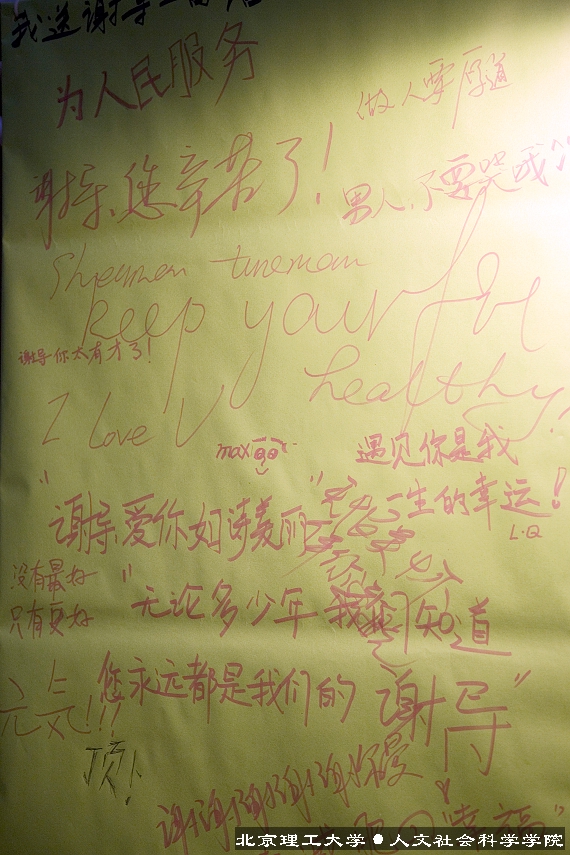 我送谢导一
为人民服务
做人要厚道
谢导,您辛苦了!
男人,不要哭哦
Shenman tureman
keep yourself
healthy!
谢导你太有才了!
I love U
max
遇见你是我
一生的幸运!
L·Q
"谢导,爱你如诗美丽"
没有最好
只有更好
"无论多少年 我们知道
您永远都是我们的谢导"
元気!!!
顶!
谢谢谢谢谢
幸福"
北京理工大学●人文社会科学学院